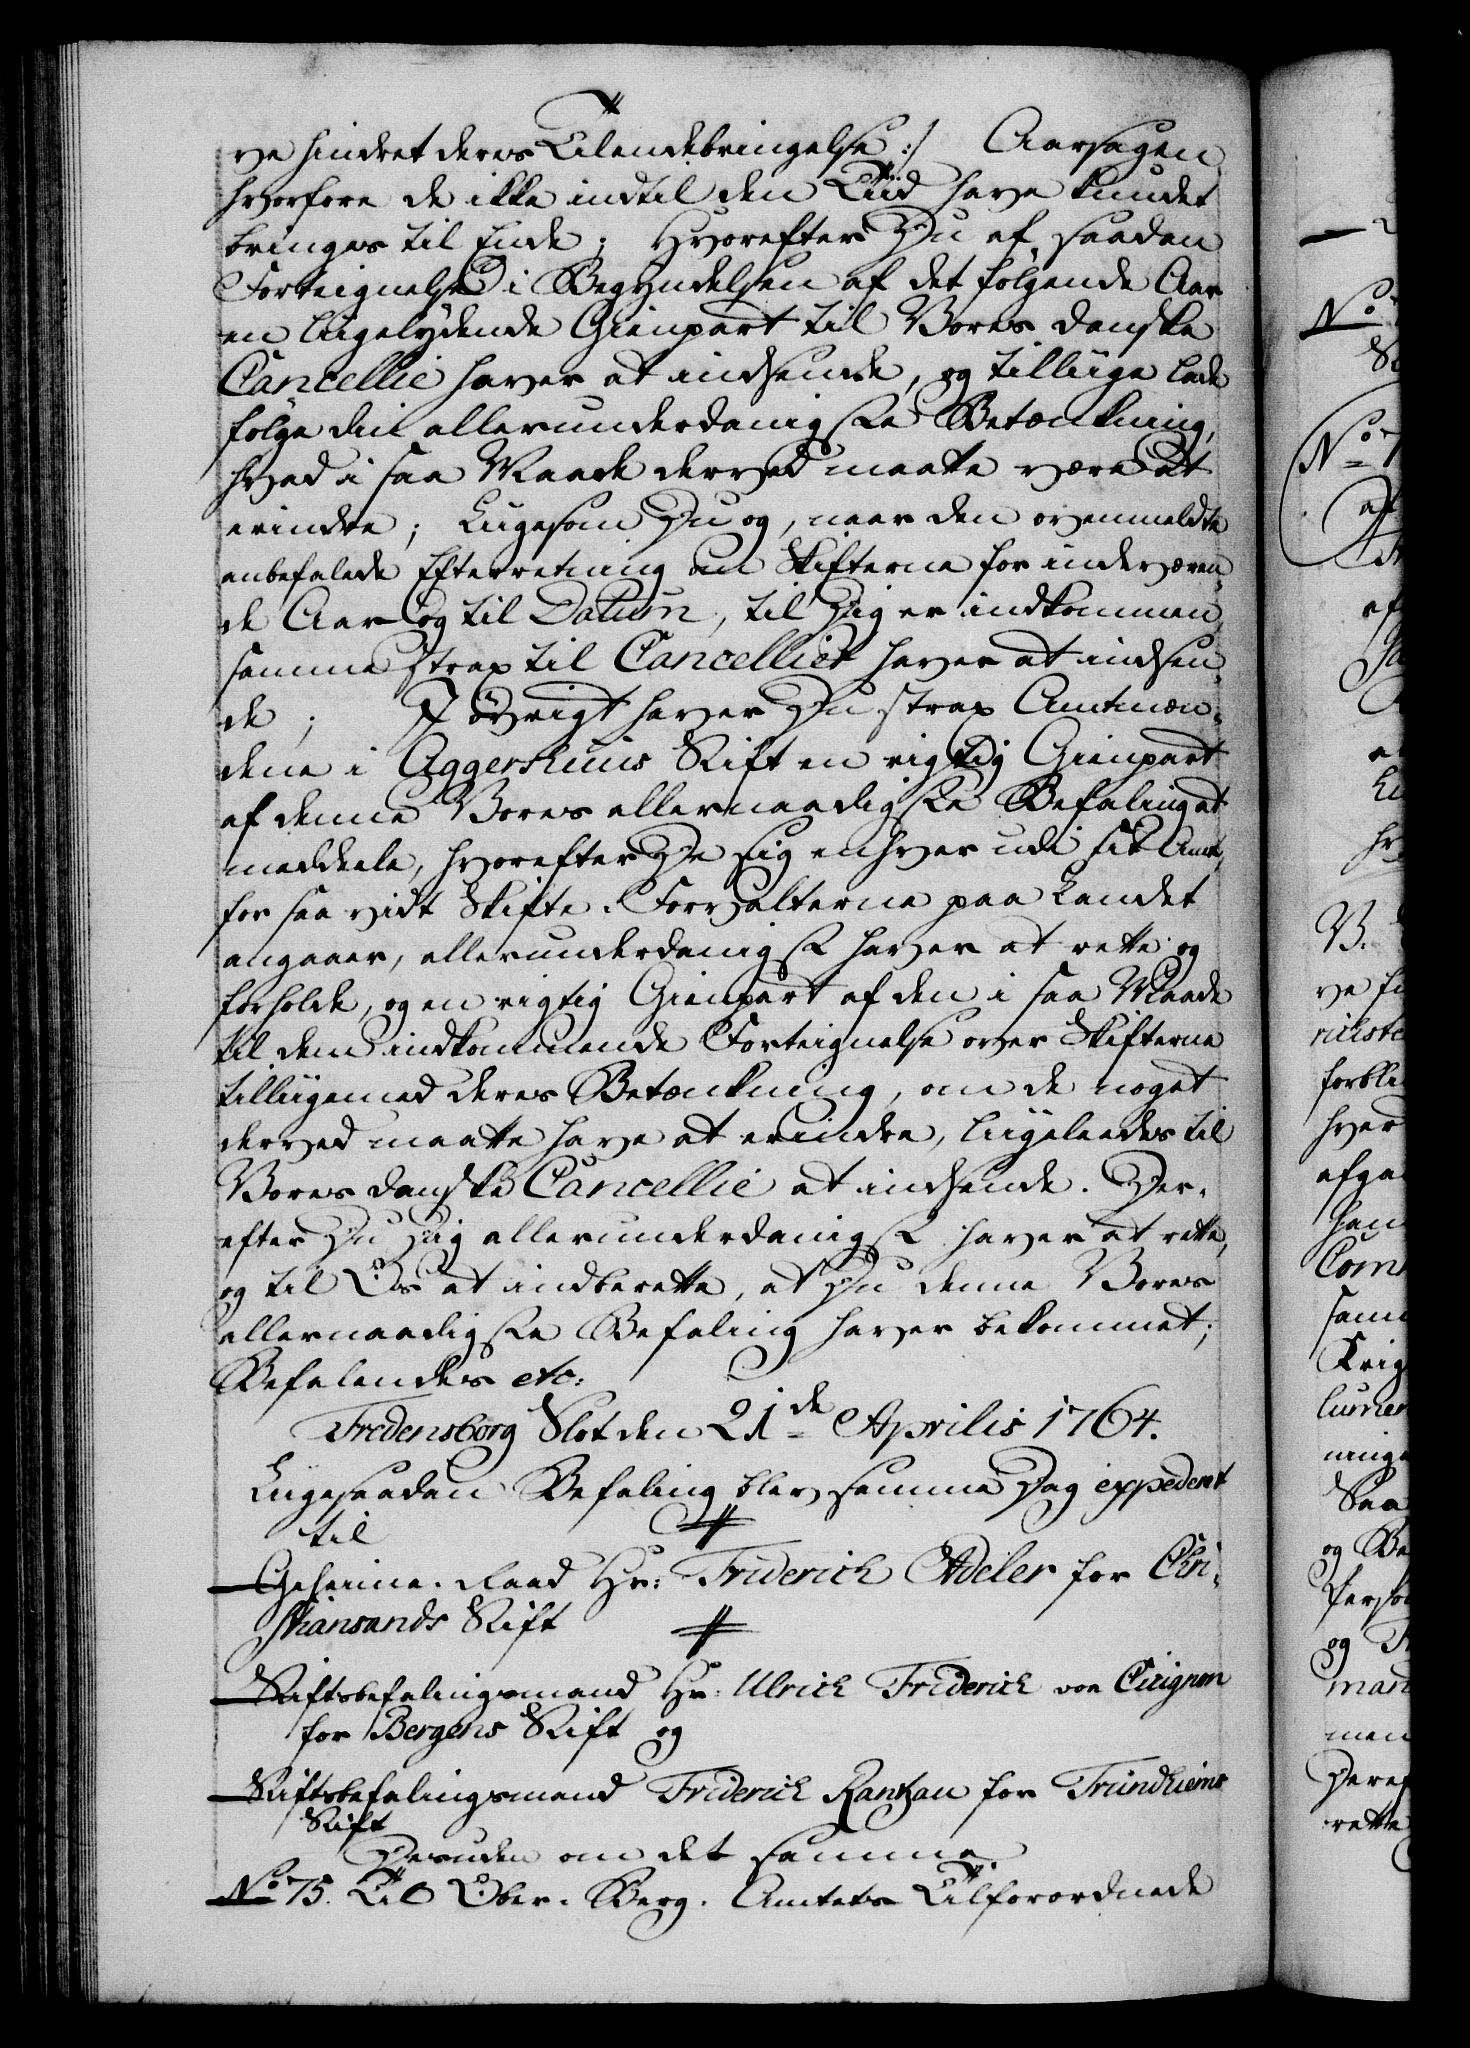 ve hindret deres Tilendebringelse :/ Aarsagen
hvorfore de ikke indtil den Tiid have kundet
bringes til Ende; Hvorefter Du af saadan
Forteignelse i Begyndelsen af det følgende Aar
en liigelydende Gienpart til Vores danske
Cancellie haver at indsende, og tilliige lade
følge din allerunderdanigste Betænkning,
hvad i saa Maade derved maatte være at
erindre; Liigesom Du og, naar den ovenmeldte
anbefalede Efterretning om Skifterne for indeværen-
de Aar og til Datum, til Dig er indkommen,
samme strax til Cancelliet haver at indsen-
de; I øvrigt haver Du strax Amtmæn-
dene i Aggershuus Stift en rigtig Gienpart
af denne Vores allernaadigste Befaling at
meddeele, hvorefter De sig enhver udi sit Amt,
for saa vidt Skifte-Forvalterne paa Landet
angaaer, allerunderdanigst haver at rette og
forholde, og en rigtig Gienpart af den i saa Maade
til dem indkommende Forteignelse over Skifterne
tilligemed deres Betænkning, om de noget
derved maatte have at erindre, liigeleedes til
Vores danske Cancellie at indsende. Der-
efter Du Dig allerunderdanigst haver at rette,
og til Os at indberette, at Du denne Vores
allernaadigste Befaling haver bekommet;
Befalendes etc:
Fredensborg Slot den 21de Aprilis 1764.
Liigesaadan Befaling blev samme Dag expederet
til
Geheime-Raad Hr: Friderich Adeler for Chri-
stiansands Stift
Stiftsbefalingsmand Hr: Ulrich Friderich von Cicignon
for Bergens Stift og
Stiftsbefalingsmand Friderich Rantzau for Trundhiems
Stift
Desuden om det samme
No 75. Til Ober-Berg-Amtets Tilforordnede